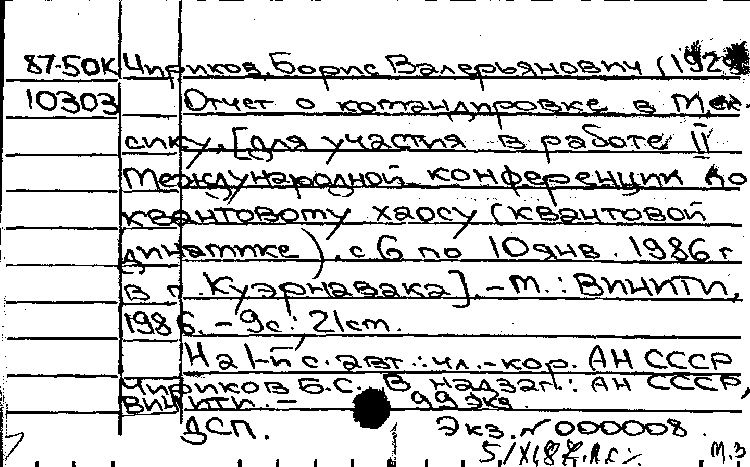 87-50К Чириков, Борис Валерьянович (192
10303 Отчет о командировке в Мек-
сику, [для участия в работе II
Международной конференции по
квантовому хаосу (квантовой
динамике), с 6 по 10 янв. 1986 г
в г. Куэрнавака]. - М.: ВИНИТИ,
1986. - 9 с.; 21 см.
На 1-й с. авт.: чл.-кор. АН СССР
Чириков Б.С. В надзаг.: АН СССР,
ВИНИТИ. - 99 экз.
ДСП. Экз. № 000008.
5/XI 87
М.З